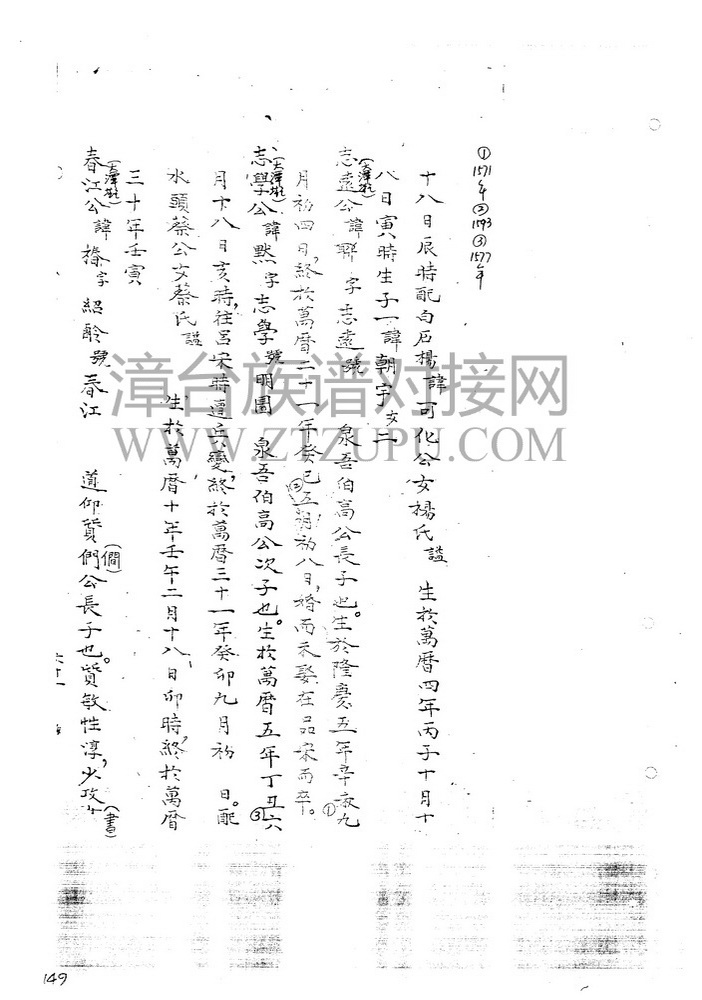 ①1571年②1593③1577年
十八日辰時配白石楊諱可化公女楊氏謚 生於萬曆四年丙子十月十
八日寅時生子一諱朝字 女二
(大譯林)
志遠公諱聯字志遠號 泉吾伯高公長子也。生於隆慶五年辛未九①
月初四日,終於萬曆二十一年癸巳②五月初八日,婚而未娶在呂宋而卒。
志學公諱默字志學號明圃 泉吾伯高公次子也。生於萬曆五年丁丑③六
月十八日亥時,往呂宋時遭兵變,終於萬曆三十一年癸卯九月初 日。配
水頭蔡公女蔡氏謚 生於萬曆十年壬午二月十八日卯時,終於萬曆
三十年壬寅
春江公諱椿字紹齡號春江 道仰質們(僩)公長子也。質敏性淳,少攻(書)
漳台族谱对接网
WWW.ZTZUPU.COM
149